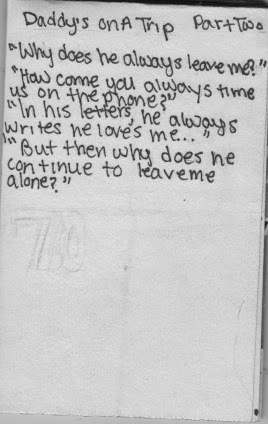 Daddy's on A Trip Part Two
"Why does he always leave me?"
"How come you always time
us on the phone?"
"In his letters, he always
writes he love's me..."
"But then why does he
continue to leave me
alone?"